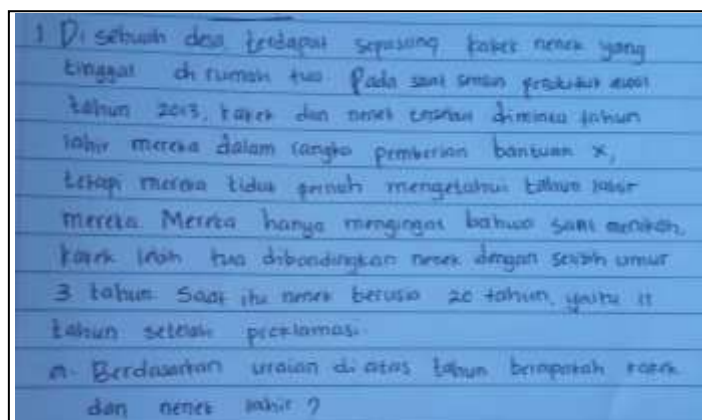 1 Di sebuah desa, terdapat sepasang kakek nenek yang
tinggal di rumah tua Pada saat sensus penduduk awal
tahun 2013, kakek dan nenek tersebut diminta tahun
lahir mereka dalam rangka pemberian bantuan X,
tetapi mereka tidak pernah mengetahui tahun lahir
mereka. Mereka hanya mengingat bahwa saat menikah,
kakek lebih tua dibandingkan nenek dengan selisih umur
3 tahun. Saat itu nenek berusia 20 tahun, yaitu 11
tahun setelah proklamasi.
a. Berdasarkan uraian di atas tahun berapakah kakek
dan nenek lahir ?